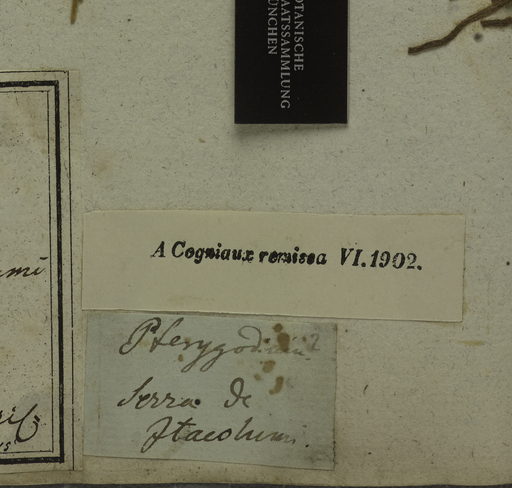 OTANISCHE
TAATSSAMMLUNG
ÜNCHEN
A Cogniaux remissa VI. 1902.
Pterygodium?
Serra de
Itacolumi.